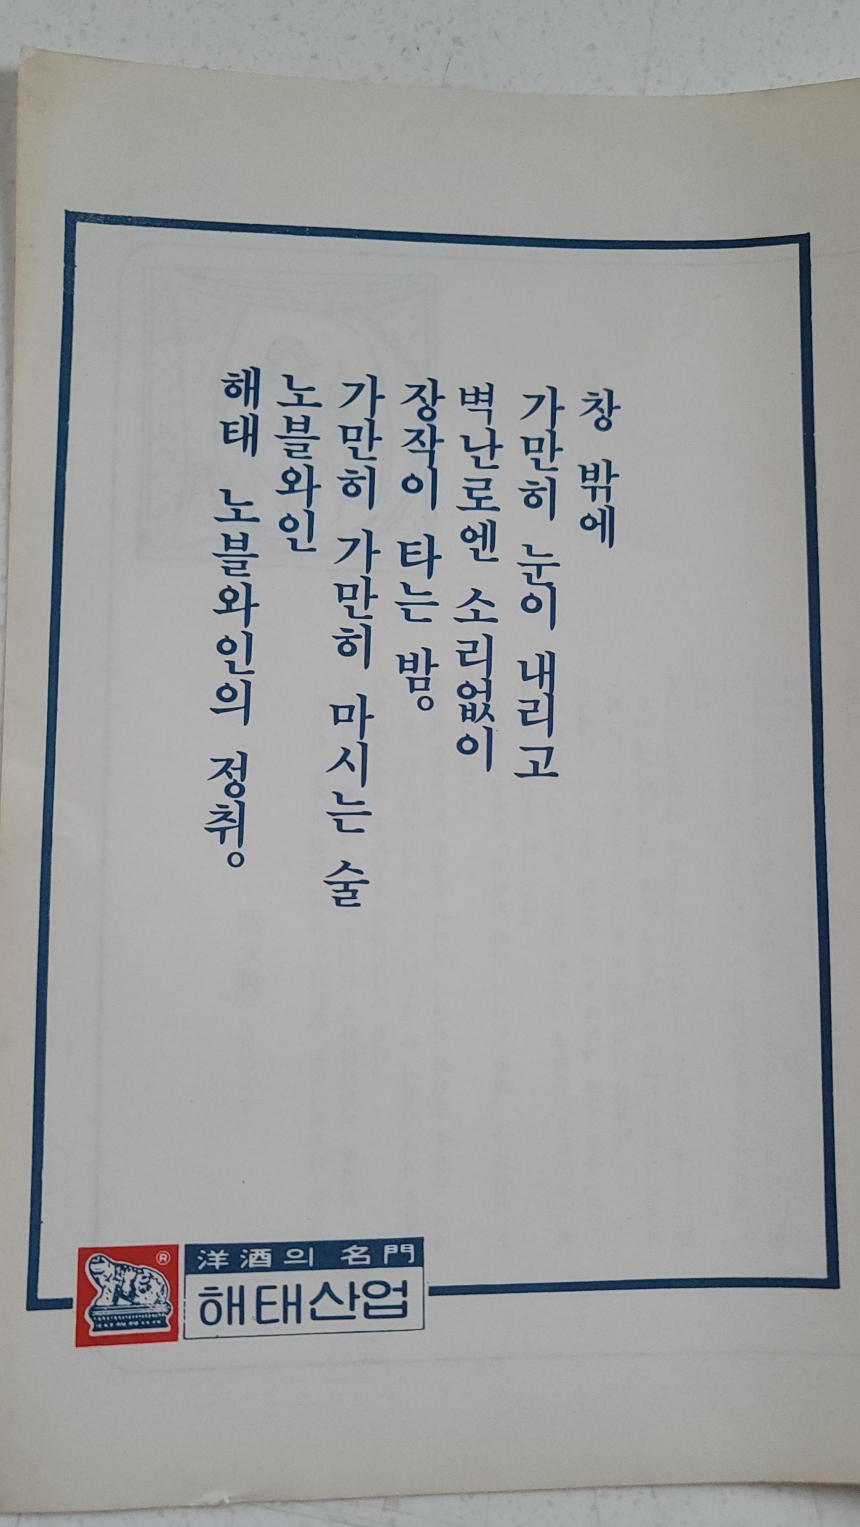 창 밖에
가만히 눈이 내리고
벽난로엔 소리없이
장작이 타는 밤。
가만히 가만히 마시는 술
노블와인
해태 노블와인의 정취。
®
洋酒의 名門
해태산업